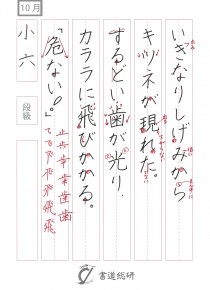 10月
小六
段級
いきなりしげみから
キツネが現れた。
するどい歯が光り、
カララに飛びかかる。
「危ない!。」
止歩歯歯歯
飛飛飛飛飛
書道総研